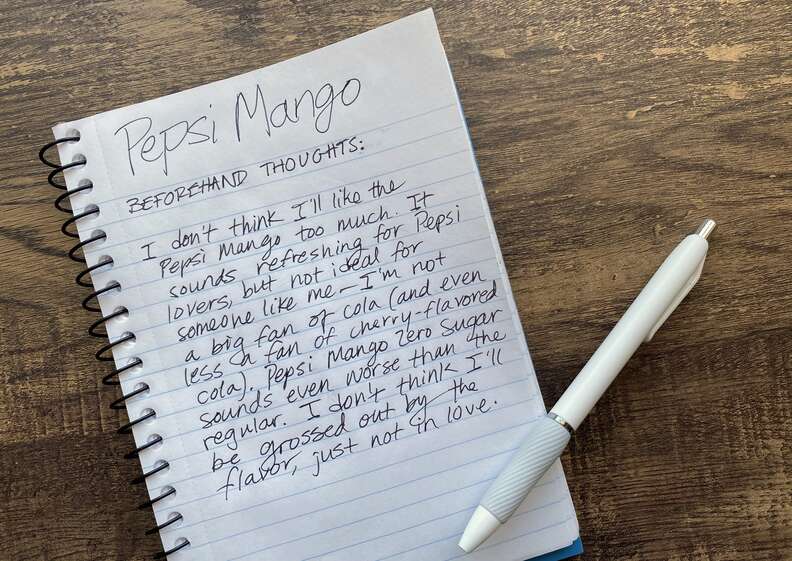 Pepsi Mango
BEFOREHAND THOUGHTS:
I don't think I'll like the
Pepsi Mango too much. It
sounds refreshing for Pepsi
lovers, but not ideal for
someone like me – I'm not
a big fan of cola (and even
less a fan of cherry-flavored
cola). Pepsi Mango Zero Sugar
sounds even worse than the
regular. I don't think I'll
be grossed out by the
flavor, just not in love.